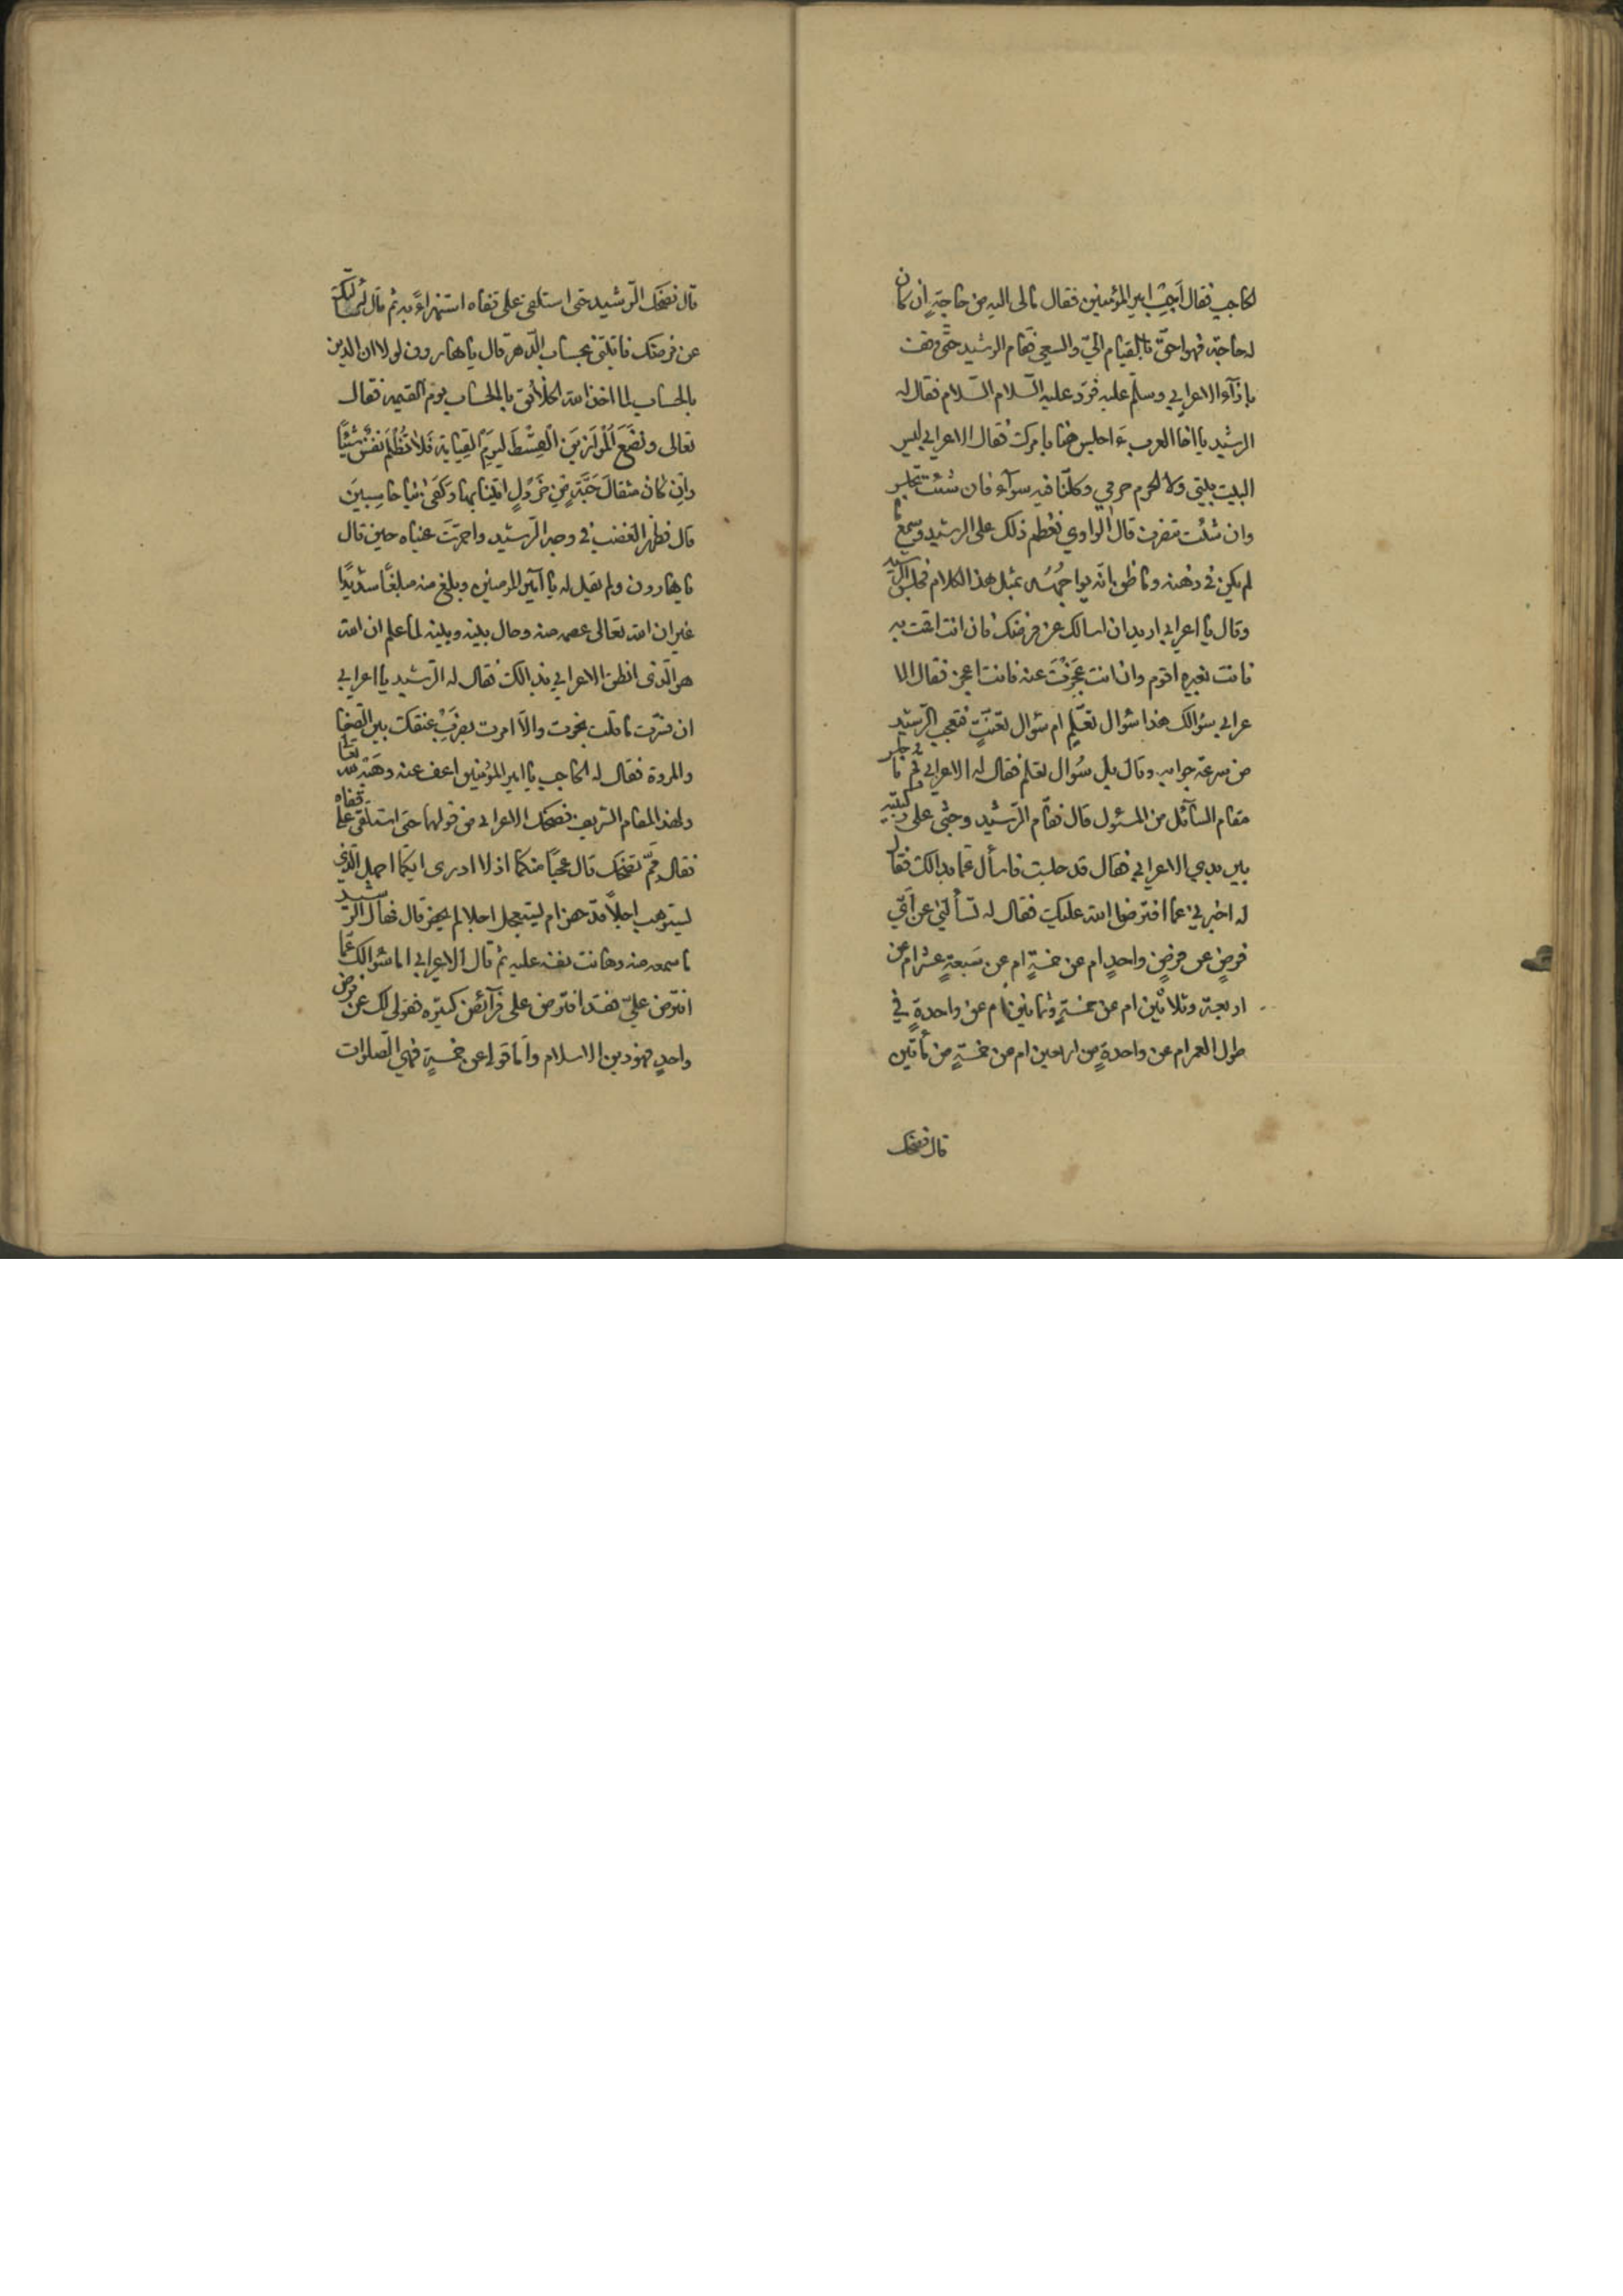 الحاجب فقال اَجِبْ امير المؤمنين فقال مالى اليه من حاجةٍ اِن كان
له حاجة فهو احقّ بالقيام اليّ والسعي فقام الرشيد حتّى وقف
بازآء الاعرابي وسلّم عليه فردّ عليه السّلام السّلام فقال له
الرشيد يا اخا العرب ءَاجلس هنا بامرك فقال الاعرابي ليس
البيت بيتي ولا الحرم حرمي وكلّنا فيه سوآء فان شئت تجلس
وان شئت تنصرف قال الراوي فعظم ذلك على الرشيد وسمع ما
لم يكن في ذهنه وما ظن انّه يواجهُه بمثل هذا الكلام فجلس الرشيد
وقال يا اعرابي اريد ان اسالك عن فرضك فان انت اقمت به
فانت بغيره اقوم وان انت عَجَزْتَ عنه فانت اعجز فقال الا
عرابي سؤالك هذا سُوال تعلّمٍ ام سُوال تعنّتٍ فتعجب الرّشيد
من سرعة جوابه وقال بل سُوال تعلم فقال له الاعرابي قم فاجلس
مقام السآئل من المسئول قال فقام الرّشيد وجثى على ركبتيه
بين يدي الاعرابي فقال قد جلست فاسأل عمّا بدالك فقال
له اخبرني عما افترض الله عليك فقال له تسألني عن اَيّ
فرضٍ عن فرضٍ واحدٍ ام عن خمسةٍ ام عن سَبعةٍ عشرام عن
اربعة وثلاثين ام عن خمسةٍ وثمانين ام عن واحدةٍ في
طول العمرام عن واحدةٍ من اربعين ام من خمسةٍ من مأتين
قال فضحك
قال فضحك الرّشيد حتى استلقى على قفاه استهزاءً به ثم قال لُه سَألتك
عن فرضك فاتيتني بحساب الدّهر قال يا هارون لولا ان الدين
بالحساب لما اخذ الله الخلائق بالحساب يوم القيمة فقال
تعالى ونَضَعُ المْوَازِينَ الْقِسْطَ لِيَومِ القِيَامَةِ فَلاَ تُظْلَمُ نَفْسٌ شَيْئًا
وَاِن كَانَ مثقالَ حَبَّةٍ مِّنْ خَرْدَلٍ اتَيْنَا بِهَا وَكَفَى بِنَا حَاسِبِينَ
قال فظهر الغضب في وجه الرّشيد واحمرّتَ عيناه حين قال
يا هارون ولم يقيل له يا اَمير المومنين وبلغ منه مبلغًا شديدًا
غير ان الله تعالى عصمه منه وحال بينه وبينه لما علم ان الله
هو الّذى انطق الاعرابي بذالك فقال له الرّشيد يا اعرابي
ان فسّرت ما قلت نجوت والاّ امرت بضَربِ عنقك بين الصّفا
والمروة فقال له الحاجب يا امير المؤمنين اعف عنه وهَبْهُ لله تعالى
ولهذا المقام الشريف فضحك الاعرابي من قولهما حتى استلقى على قفاه
فقال مِمَّ تضحك قال عجبًا منكما اذ لا ادرى ايّكما اجهل الّذى
يستوهب اجلاً قد حضر ام ليستعجل اجلا لم يحضر قال فهال الرّشيد
ما سمعه منه وهانت نفسه عليه ثم قال الاعرابي اما سُوالك عمّا
افترض عليّ فقد افترض علي فرآئض كثيرة فقولى لك عن فرض
واحدٍ فهو دين الاسلام وَاَمّا قولي عن خمسةٍ فهي الصّلوات